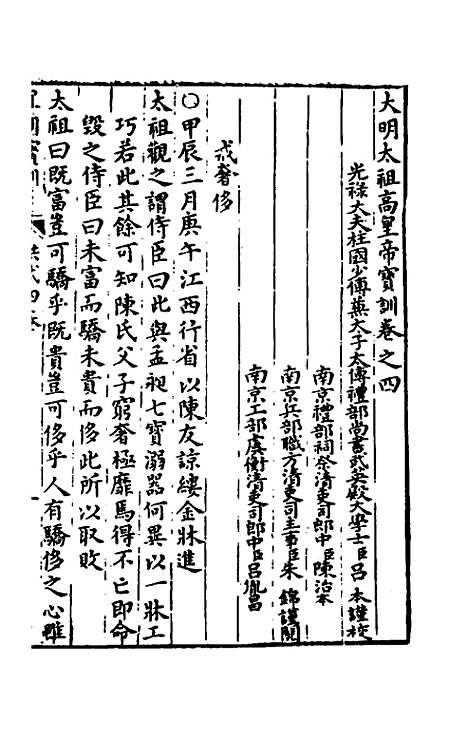 大明太祖高皇帝寶訓卷之四
光祿大夫柱國少傅蕪太子太傅禮部尚書武英殿大學士臣呂本謹校
南京禮部祠祭清吏司郎中臣陳治本
南京兵部職方清吏司主事臣朱錦謹閱
南京工部虞衡清吏司郎中臣呂胤昌
戒奢侈
○甲辰三月庚午江西行省以陳友諒縷金牀進
太祖觀之謂侍臣曰此與孟昶七寶溺器何異以一牀工
巧若此其餘可知陳氏父子窮奢極靡焉得不亡即命
毀之侍臣曰未富而驕未貴而侈此所以取敗
太祖曰既富豈可驕乎既貴豈可侈乎人有驕侈之心雖